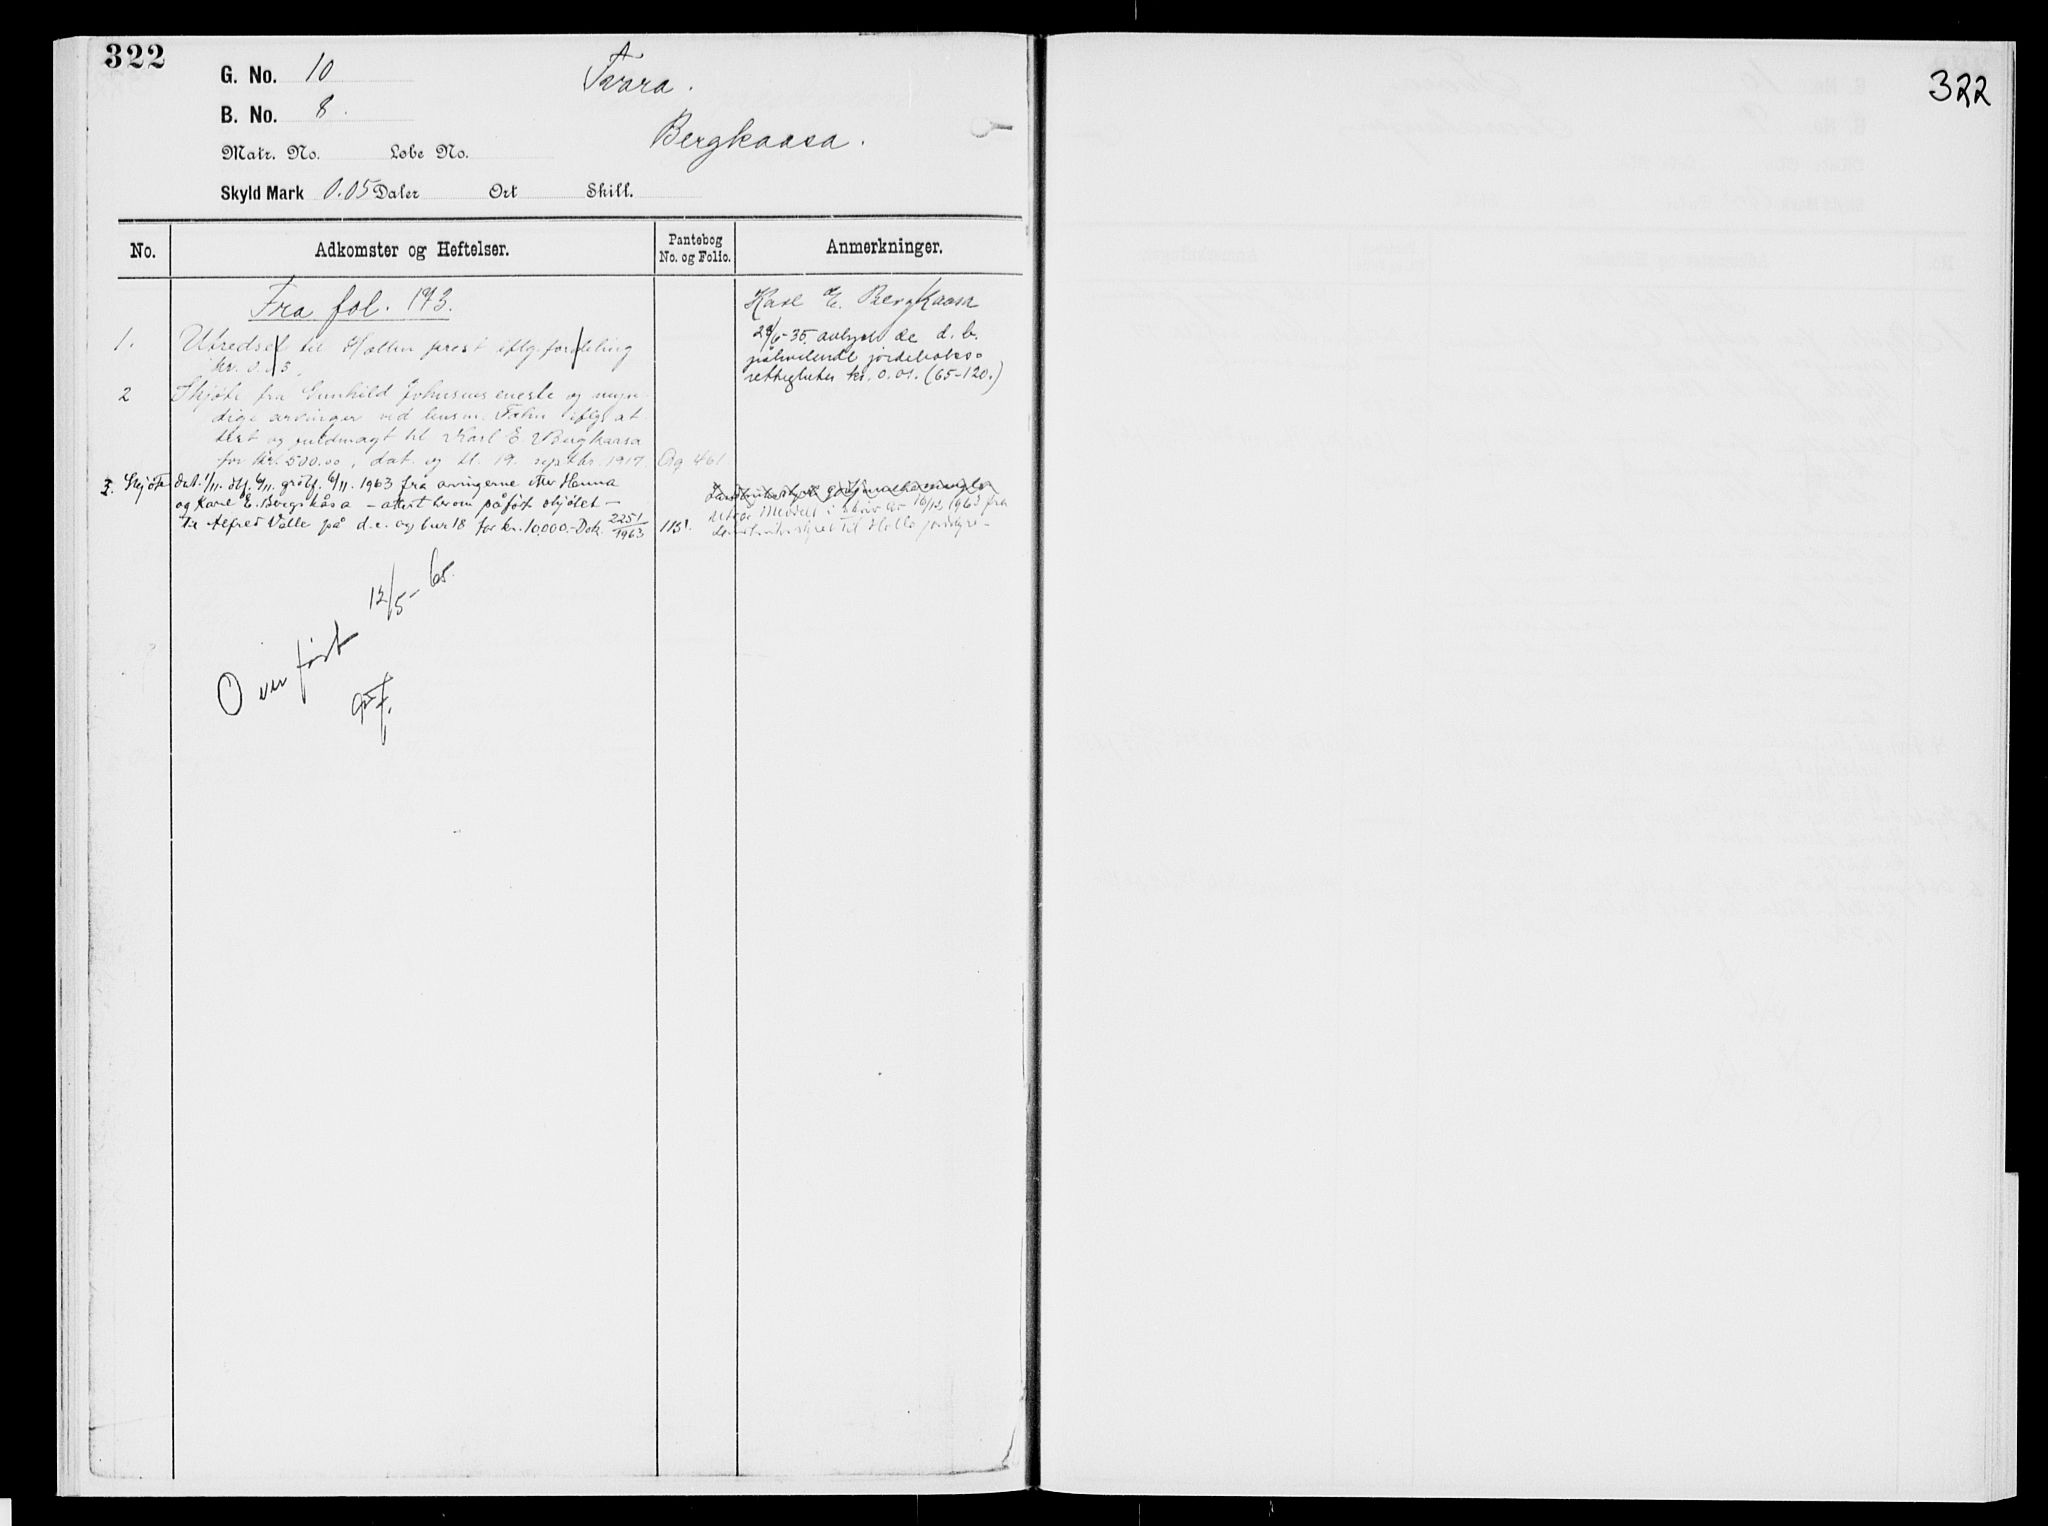 322
G. No. 10
Tvara.
B. No. 8.
Bergkaasa.
Matr. No. Løbe No.
Skyld Mark 0.05 Daler Ort Skill.
No. Adkomster og Heftelser. Pantebog No. og Folio. Anmerkninger.
Fra fol. 173.
Karl E. Bergkaasa
1. Utredsel til Hollen prest iflg. fordeling
kr. 0.03.
28/6-35. avlyst de d. b.
påhvilende jordeboks-
rettigheter kr. 0.01. (65-120.)
2 Skjøte fra Gunhild Johnsens eneste og myn-
dige arvinger ved lensm. iflg. at-
test og fuldmagt til Karl E. Bergkaasa
for kr. 500.00, dat. og tl. 19. septbr. 1917. 461
3. Skjøte dat. 1/11. dbf. 6/11. grbf. 6/11. 1963 fra arvingerne etter Hanna
og Karl E. Bergskåsa – attest herom påført skjötet –
til Alfred Valle på d.e. og bnr 18 for kr. 10,000.- Dok. 2251/1963 115!
meddelt i skriv av 10/12 1963 fra
til Holla jordstyre -
Overført 12/5-65.
322